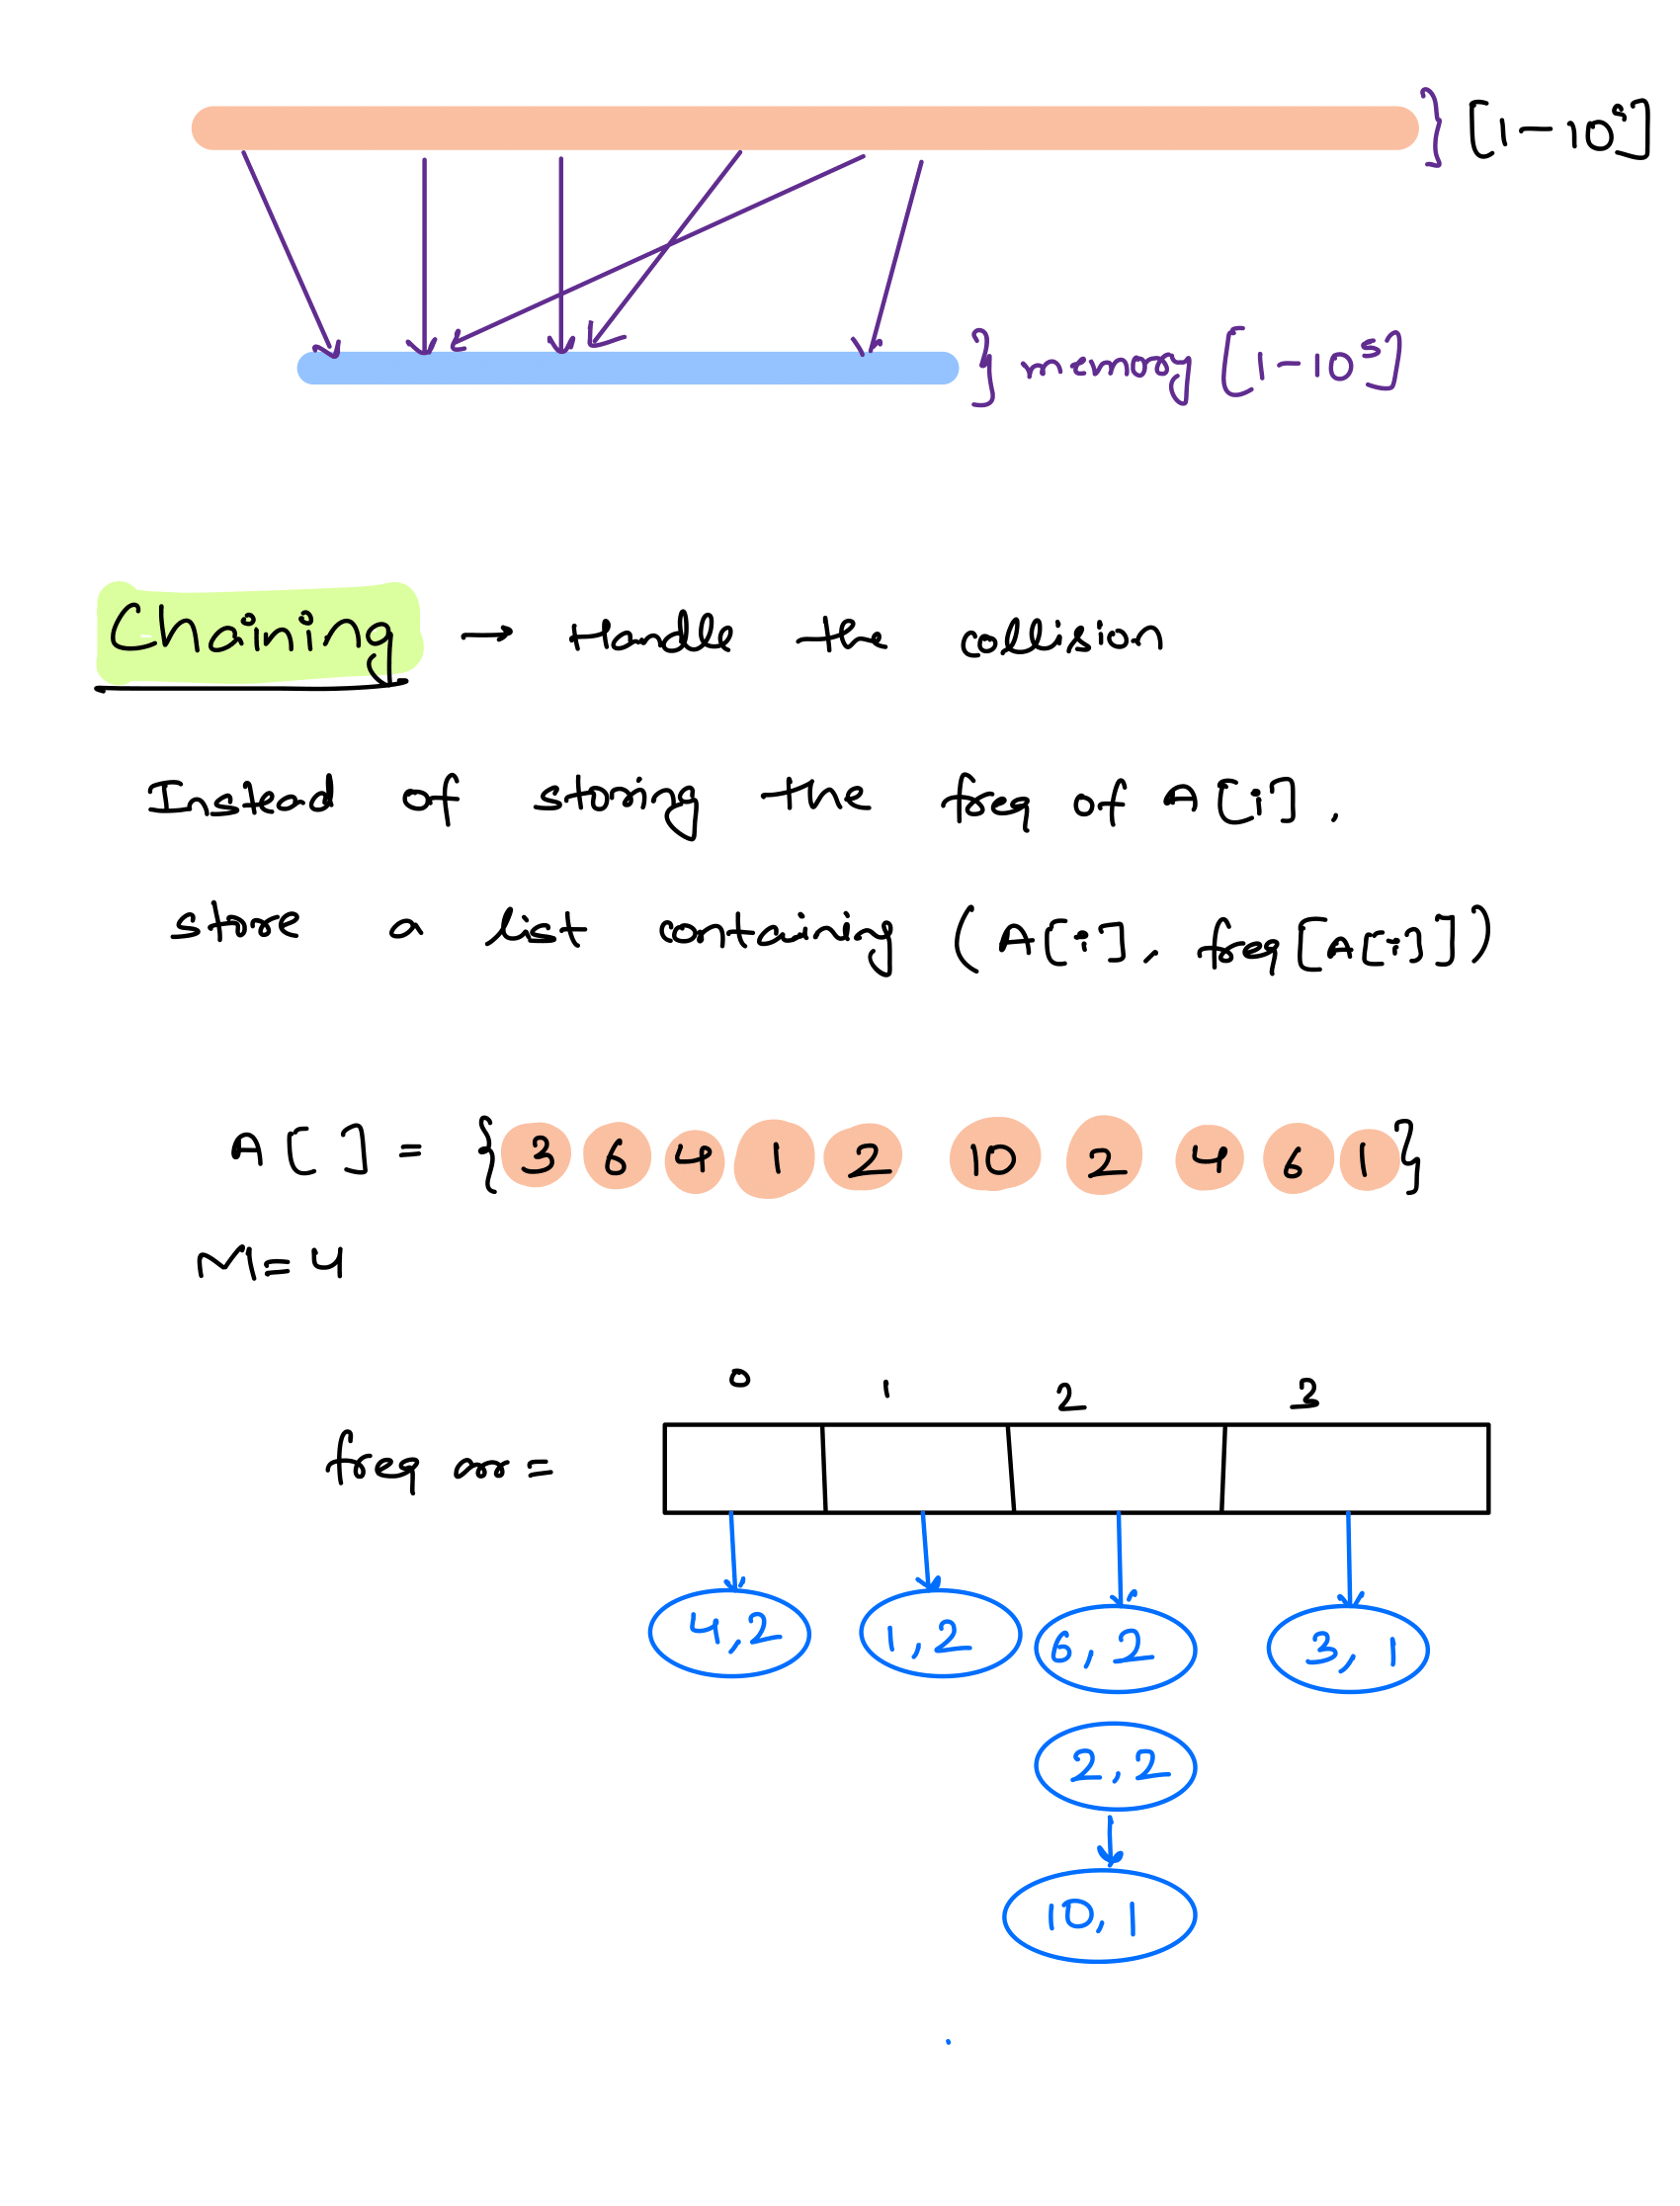 } [1 - 10⁹]
} memory [1 - 10⁵]
Chaining → Handle the collision
Instead of storing the freq of A[i].
store a list containing (A[i], freq[A[i]])
A[ ] = {3 6 4 1 2 10 2 4 6 1}
M = 4
0 1 2 3
freq arr =
4,2 1,2 6,2 3,1
2,2
10,1